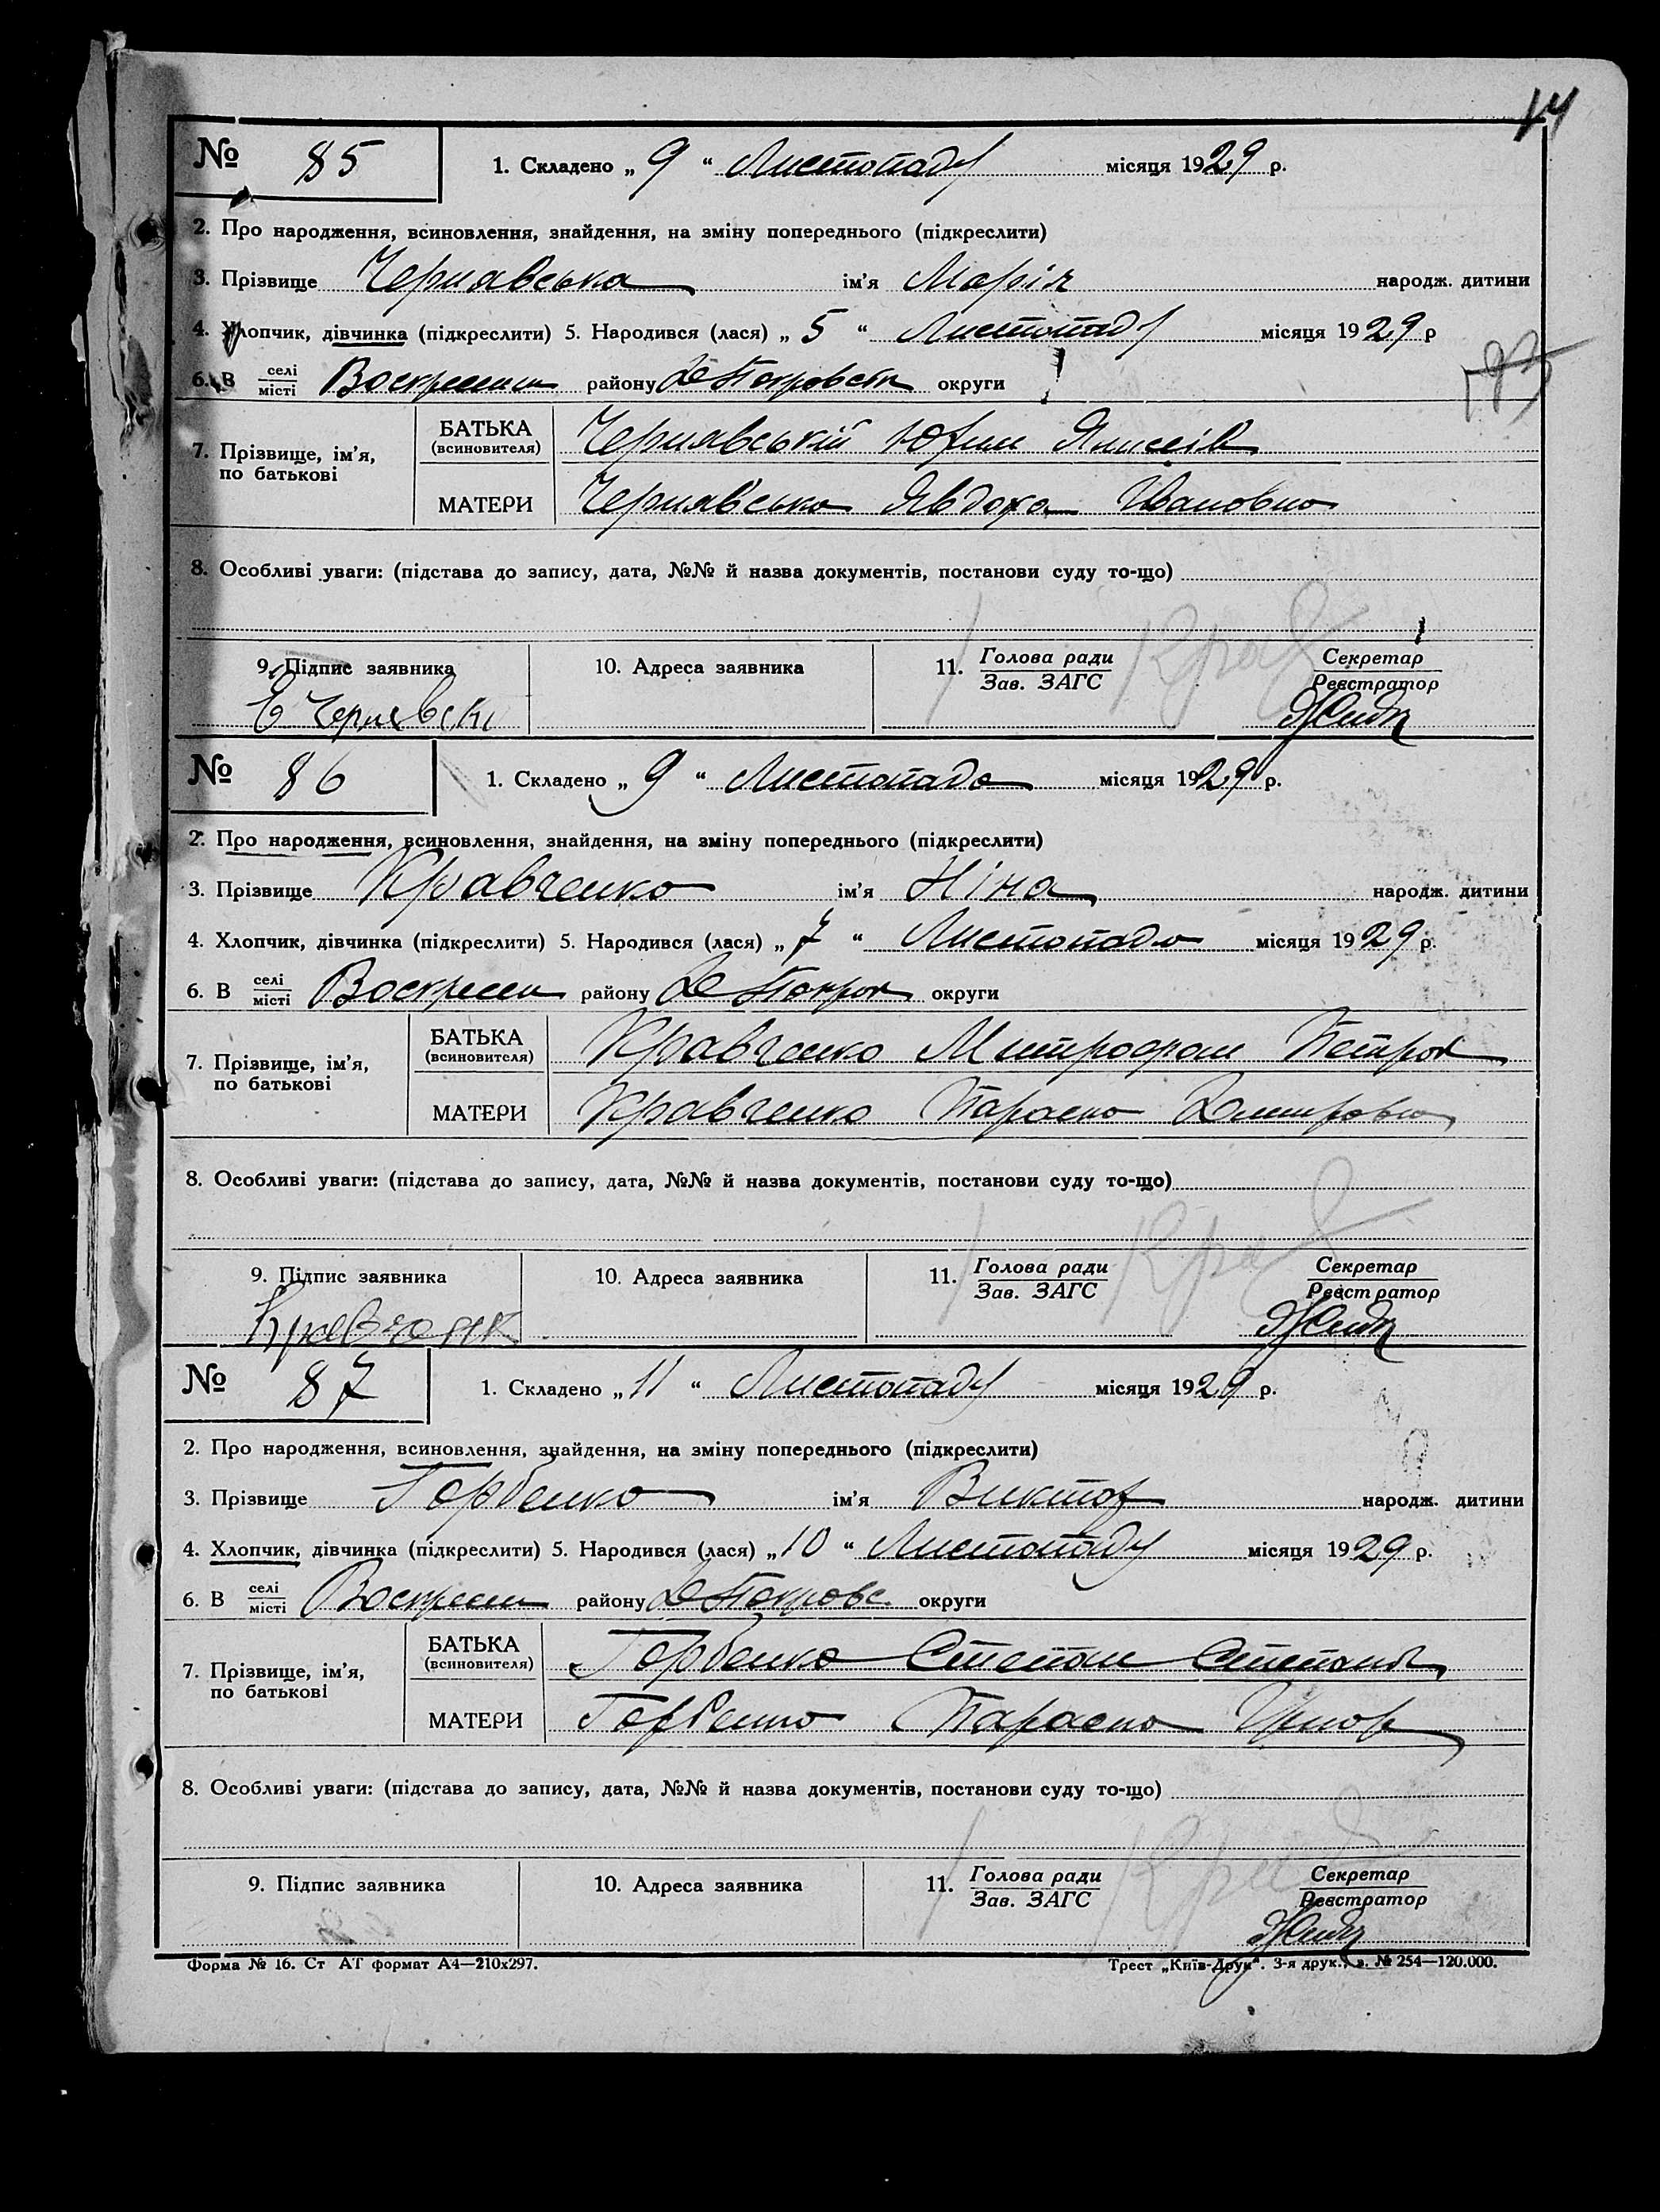 14
№ 85 1. Складено „ 9 “ Листопаду місяця 1929 р.
2. Про народження, всиновлення, знайдення, на зміну попереднього (підкреслити)
3. Прізвище Чернявська ім'я Марія народж. дитини
4. Хлопчик, дівчинка (підкреслити) 5. Народився (лася) „ 5 “ Листопаду місяця 1929 р
6. В селі місті району округи
БАТЬКА (всиновителя) Чернявській Юхим
7. Прізвище, ім'я, по батькові
МАТЕРИ Чернявська Явдоха Ивановна
8. Особливі уваги: (підстава до запису, дата, №№ й назва документів, постанови суду то-що)
9. Підпис заявника 10. Адреса заявника 11. Голова ради Секретар
Зав. ЗАГС Реєстратор
№ 86 1. Складено „ 9 “ Листопада місяця 1929 р.
2. Про народження, всиновлення, знайдення, на зміну попереднього (підкреслити)
3. Прізвище Кравченко ім'я Ніна народж. дитини
4. Хлопчик, дівчинка (підкреслити) 5. Народився (лася) „ 7 “ Листопада місяця 1929 р.
6. В селі місті району округи
БАТЬКА (всиновителя) Кравченко Митрофан Петров
7. Прізвище, ім'я, по батькові
МАТЕРИ Кравченко Параска
8. Особливі уваги: (підстава до запису, дата, №№ й назва документів, постанови суду то-що)
9. Підпис заявника 10. Адреса заявника 11. Голова ради Секретар
Зав. ЗАГС Реєстратор
№ 87 1. Складено „ 11 “ Листопаду місяця 1929 р.
2. Про народження, всиновлення, знайдення, на зміну попереднього (підкреслити)
3. Прізвище Горбенко ім'я Виктор народж. дитини
4. Хлопчик, дівчинка (підкреслити) 5. Народився (лася) „ 10 “ Листопаду місяця 1929 р.
6. В селі місті району округи
БАТЬКА (всиновителя) Горбенко Степан Степанов
7. Прізвище, ім'я, по батькові
МАТЕРИ Горбенко Параска
8. Особливі уваги: (підстава до запису, дата, №№ й назва документів, постанови суду то-що)
9. Підпис заявника 10. Адреса заявника 11. Голова ради Секретар
Зав. ЗАГС Реєстратор
Форма № 16. Ст АТ формат А4—210х297. Трест „Київ-Друк“. 3-я друк., з. № 254—120.000.